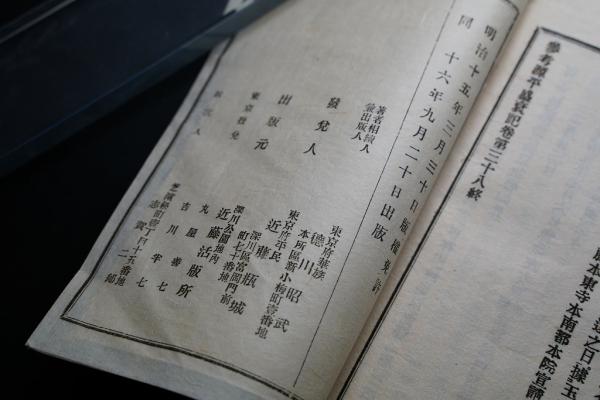 本東寺本南都本院宣謂
參考源平盛衰記卷第三十八終
明治十五年三月三十日版權免許
同 十六年九月二十日出版
著者相續人
兼出版人
東京府華族
德川昭武
本所區新小梅町壹番地
發兌人
東京府平民
近藤瓶城
深川區富岡門前
町七十番地
出版元
深川公園地內
近藤活版所
東京發兌
丸屋善七
吉川半七
芝濱松町壹丁目十五番地